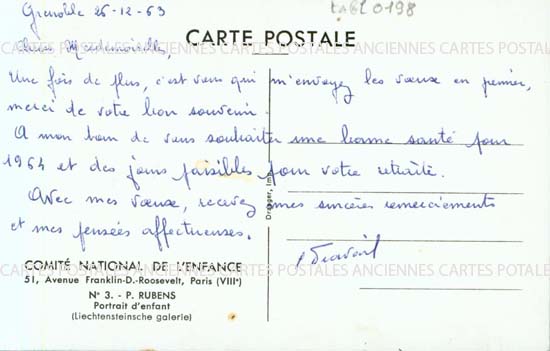 Grenoble 26-12-63
tabl 0198
Chère Mademoiselle,
CARTE POSTALE
CARTES POSTALES ANCIENNES CARTES POSTALES ANCIENNES CARTES POSTALES
Une fois de plus, c'est vous qui m'envoyez les vœux en premier,
merci de votre bon souvenir.
A mon tour de vous souhaiter une bonne santé pour
1964 et des jours paisibles pour votre retraite.
Avec mes vœux, recevez mes sincères remerciements
et mes pensées affectueuses.
Draeger, Imp.
COMITÉ NATIONAL DE L'ENFANCE
CARTES POSTALES ANCIENNES CARTES POTALES ANCIENNES CARTES POTALES
51, Avenue Franklin-D.-Roosevelt, Paris (VIIIe)
N° 3. - P. RUBENS
Portrait d'enfant
(Liechtensteinsche galerie)